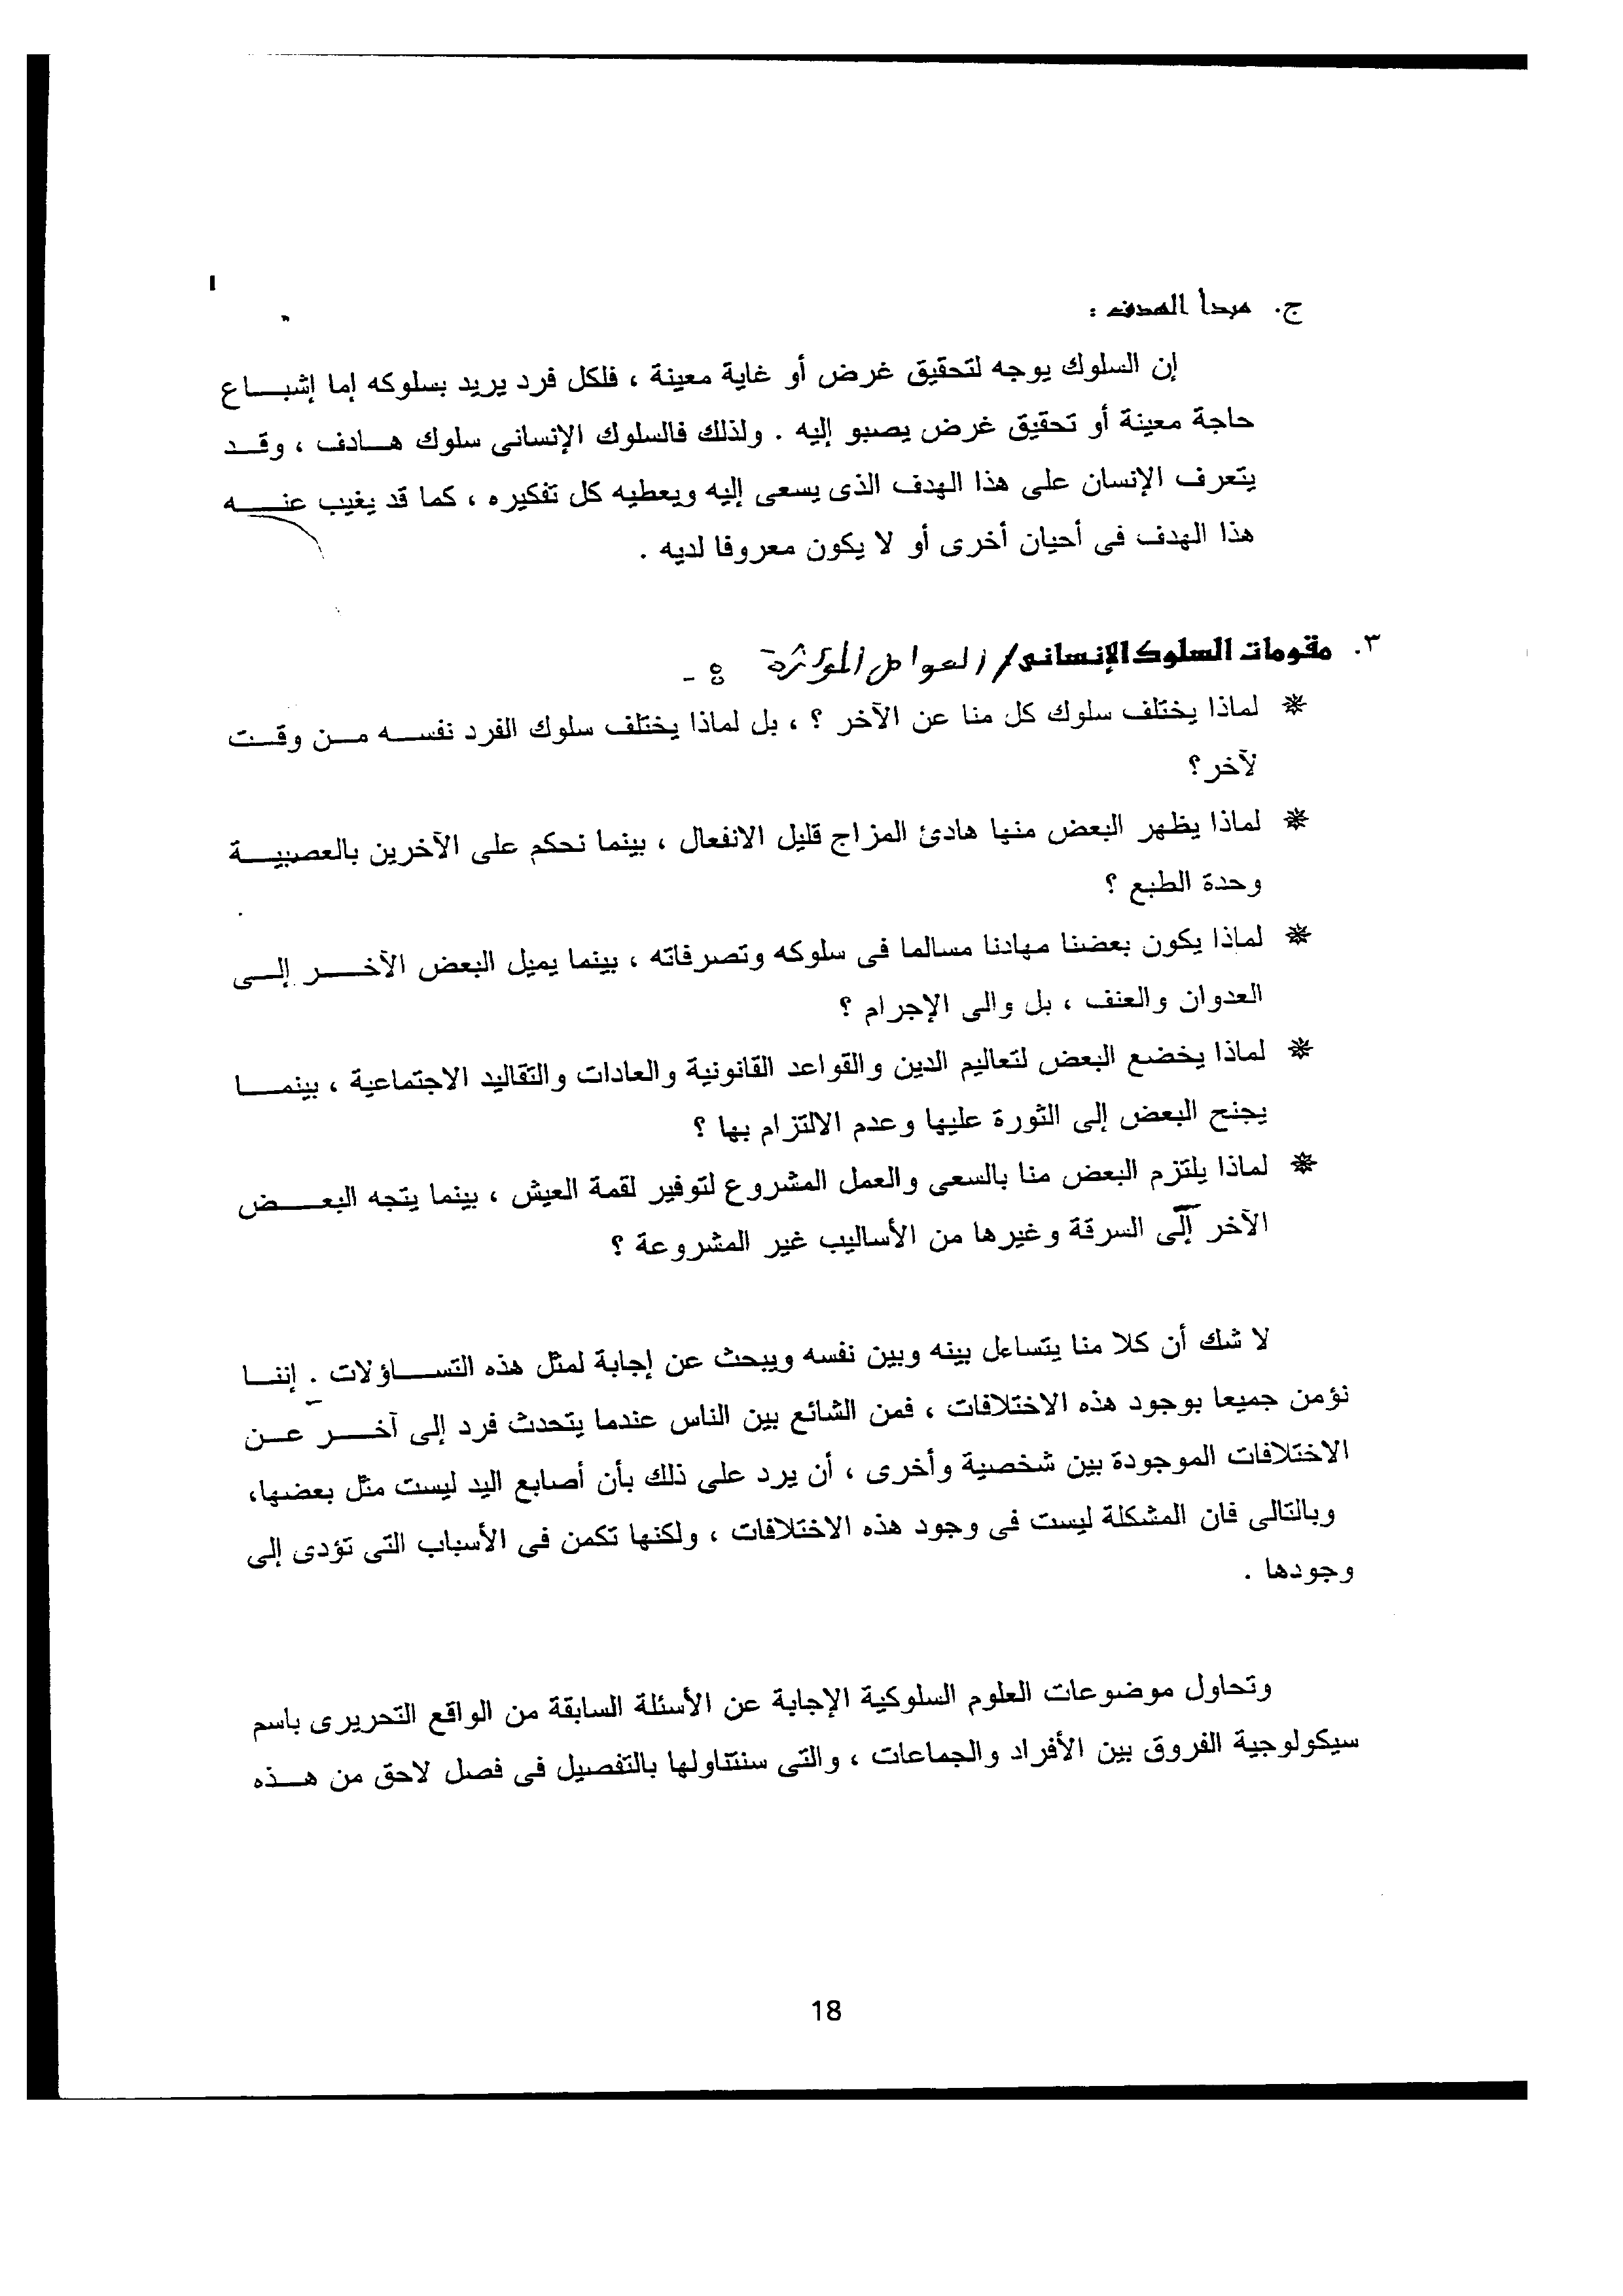 ج. مبدأ الهدف :
إن السلوك يوجه لتحقيق غرض أو غاية معينة ، فلكل فرد يريد بسلوكه إما إشبـــاع
حاجة معينة أو تحقيق غرض يصبو إليه . ولذلك فالسلوك الإنسانى سلوك هــادف ، وقــد
يتعرف الإنسان على هذا الهدف الذى يسعى إليه ويعطيه كل تفكيره ، كما قد يغيب عنـــه
هذا الهدف فى أحيان أخرى أو لا يكون معروفا لديه .
٣. مقومات السلوك الإنسانى / العوامل المؤثرة :-
* لماذا يختلف سلوك كل منا عن الآخر ؟ ، بل لماذا يختلف سلوك الفرد نفســه مــن وقــت
لآخر؟
* لماذا يظهر البعض منها هادئ المزاج قليل الانفعال ، بينما نحكم على الآخرين بالعصبيـــة
وحدة الطبع ؟
* لماذا يكون بعضنا مهادنا مسالما فى سلوكه وتصرفاته ، بينما يميل البعض الآخـــر إلــى
العدوان والعنف ، بل والى الإجرام ؟
* لماذا يخضع البعض لتعاليم الدين والقواعد القانونية والعادات والتقاليد الاجتماعية ، بينمـــا
يجنح البعض إلى الثورة عليها وعدم الالتزام بها ؟
* لماذا يلتزم البعض منا بالسعى والعمل المشروع لتوفير لقمة العيش ، بينما يتجه البعـــض
الآخر إلى السرقة وغيرها من الأساليب غير المشروعة ؟
لا شك أن كلا منا يتساءل بينه وبين نفسه ويبحث عن إجابة لمثل هذه التســـاؤلات . إننــا
نؤمن جميعا بوجود هذه الاختلافات ، فمن الشائع بين الناس عندما يتحدث فرد إلى آخـــر عــن
الاختلافات الموجودة بين شخصية وأخرى ، أن يرد على ذلك بأن أصابع اليد ليست مثل بعضها،
وبالتالى فان المشكلة ليست فى وجود هذه الاختلافات ، ولكنها تكمن فى الأسباب التى تؤدى إلى
وجودها .
وتحاول موضوعات العلوم السلوكية الإجابة عن الأسئلة السابقة من الواقع التحريرى باسم
سيكولوجية الفروق بين الأفراد والجماعات ، والتى سنتناولها بالتفصيل فى فصل لاحق من هــذه
18